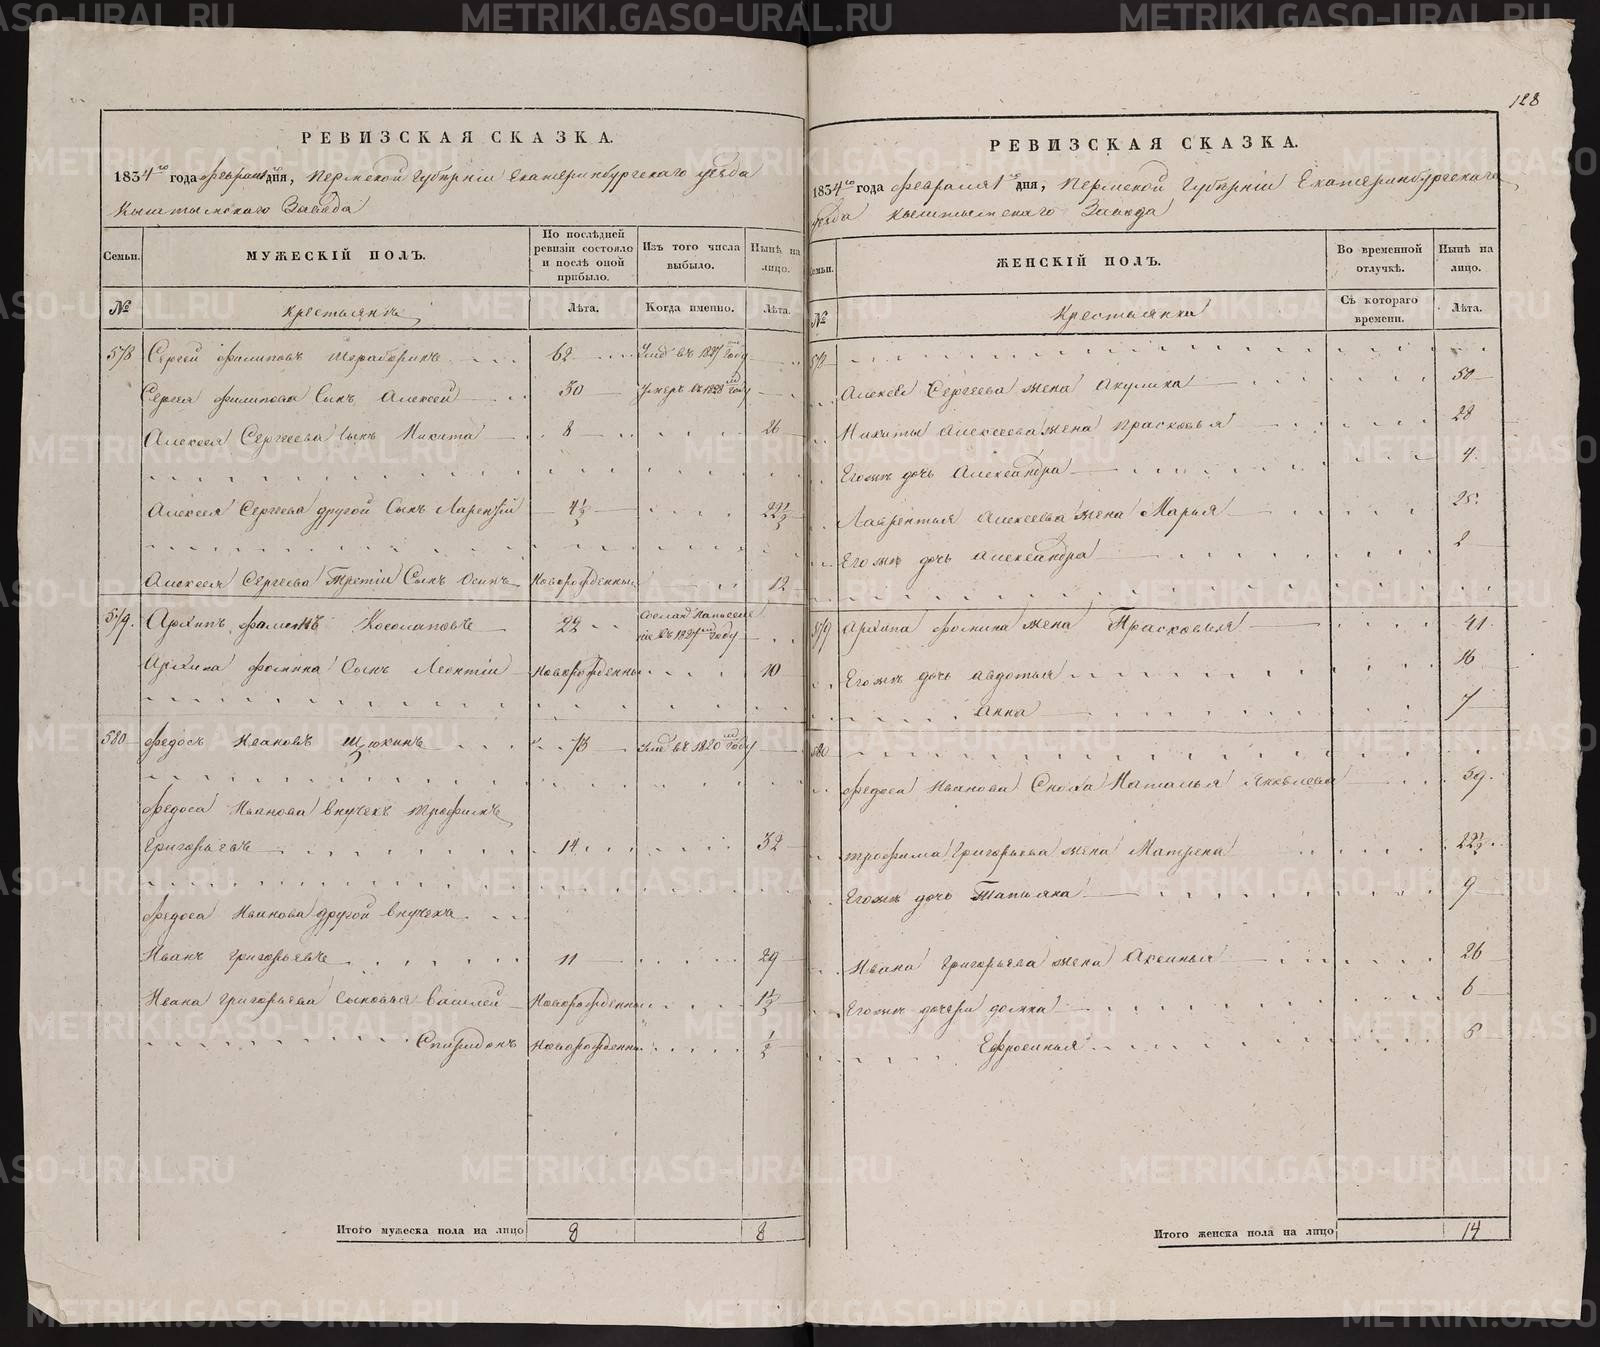 128
РЕВИЗСКАЯ СКАЗКА.
1834го года февраля 1го дня, Пермской Губерніи Екатеринбургскаго уезда
Кыштымскаго Завода
Семьи.
МУЖЕСКІЙ ПОЛЪ.
По послѣдней ревизіи состояло и послѣ оной прибыло.
Изъ того числа выбыло.
Нынѣ на лицо.
№
Крестьянъ
Лѣта.
Когда именно.
Лѣта.
578 Сергей Филиповъ 62 Умеръ въ 1827 году
Сергея Филипова Сынъ Алексей 30 Умеръ въ 1828 году
Алексея Сергеева Сынъ Никита 8 26
Алексея Сергеева другой Сынъ 4½ 22½
Алексея Сергеева Третій Сынъ Осипъ Новорожденный 12
579. Архипъ Фоминъ Косолаповъ 22 Сосланъ на поселеніе въ 1827 году
Архипа Фомина Сынъ Леонтій Новорожденный 10
580 Федосъ Ивановъ Щукинъ 73 Умеръ въ 1820 году
Федоса Иванова внучекъ Трофимъ
Григорьевъ 14 32
Федоса Иванова другой внучекъ
Иванъ Григорьевъ 11 29
Ивана Григорьева Сыновья Василей Новорожденный 1½
Спиридонъ Новорожденный ½
Итого мужеска пола на лицо 8 8
РЕВИЗСКАЯ СКАЗКА.
1834го года февраля 1го дня, Пермской Губерніи Екатеринбургскаго
уезда Кыштымскаго Завода
Семьи.
ЖЕНСКІЙ ПОЛЪ.
Во временной отлучкѣ.
Нынѣ на лицо.
№
Крестьянки
Съ котораго времени.
Лѣта.
578
Алексея Сергеева жена Акулина 50
Никиты Алексеева жена Прасковья 28
Егожъ дочь Александра 4
Лаврентья Алексеева жена Марья 25
Егожъ дочь Александра 2
579 Архипа Фомина жена Прасковья 41
Егожъ дочь Авдотья 16
Анна 7
580
Федоса Иванова Сноха Наталья Яковлева 59
Трофима Григорьева жена Матрена 22½
Егожъ дочь Татьяна 9
Ивана Григорьева жена Аксинья 26
Егожъ дочери Домна 6
Ефросинья 5
Итого женска пола на лицо 14
METRIKI.GASO-URAL.RU